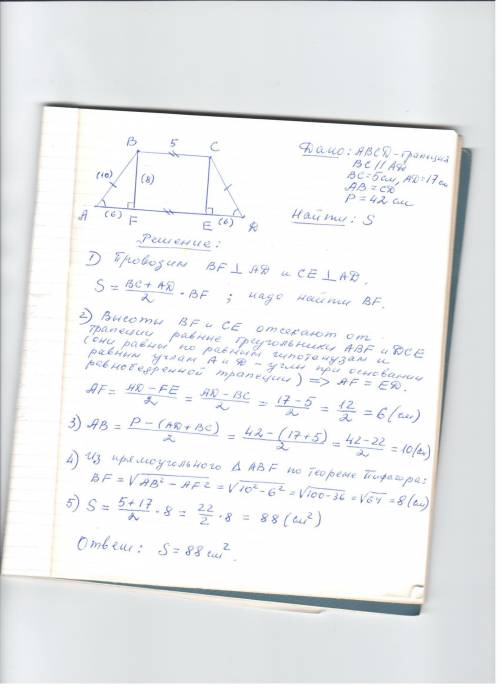 B 5 C
(10) (8)
A (6) F E (6) D
Дано: ABCD-трапеция
BC || AD
BC=5см, AD=17см
AB=CD
P=42 см
Найти: S
Решение:
1) Проводим BF⊥AD и CE⊥AD.
S = (BC+AD)/2 · BF ; надо найти BF.
2) Высоты BF и CE отсекают от
трапеции равные треугольники ABF и DCE
(они равны по равным гипотенузам и
равным углам A и D – углы при основании
равнобедренной трапеции) => AF = ED.
AF = (AD-FE)/2 = (AD-BC)/2 = (17-5)/2 = 12/2 = 6 (см)
3) AB = (P-(AD+BC))/2 = (42-(17+5))/2 = (42-22)/2 = 10(см)
4) Из прямоугольного Δ ABF по теореме Пифагора:
BF = √(AB²-AF²) = √(10²-6²) = √(100-36) = √64 = 8 (см)
5) S = (5+17)/2 · 8 = 22/2 · 8 = 88 (см²)
Ответ: S = 88 см².